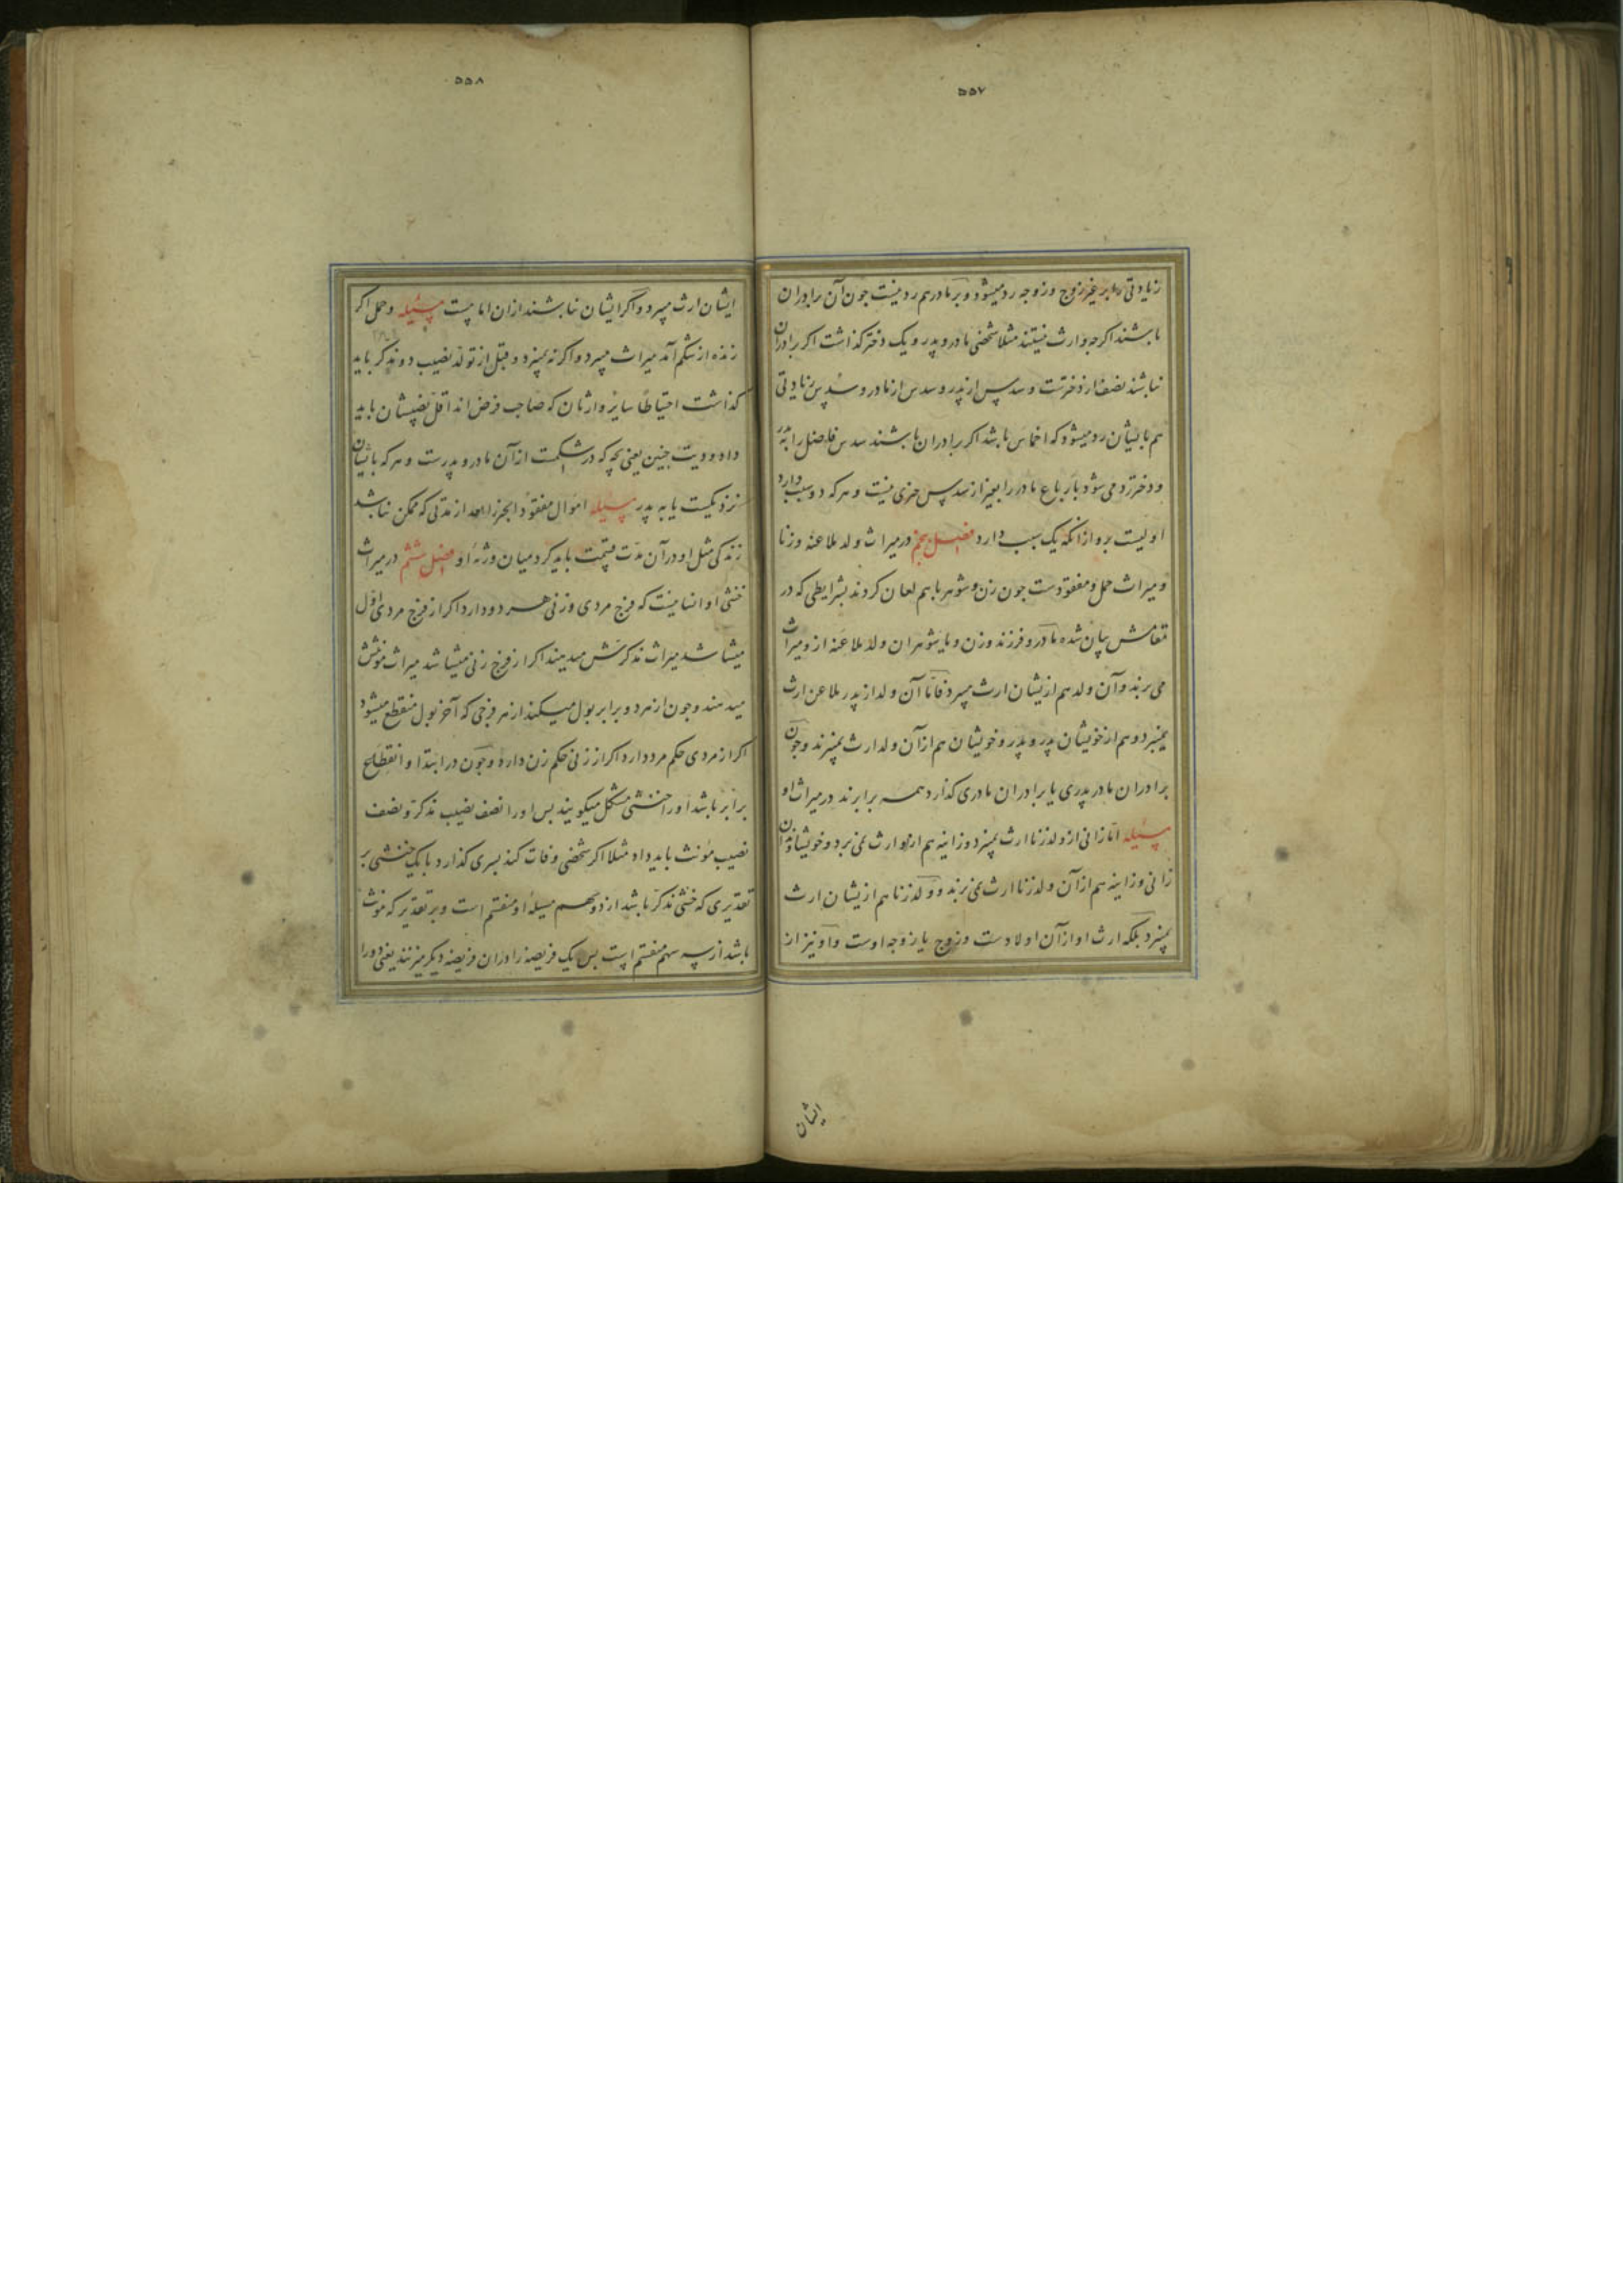 ۵۵۷
زیادتی بر غیر زوج و زوجه رد میشود و بر مادر هم رد نیست چون آن را برادران
باشند اگرچه وارث نیستند مثلا شخصی مادر و پدر و یک دختر گذاشت اگر برادران
نباشند نصف از دخترست و سدس از پدر و سدس از مادر و سدس زیادتی
هم بایشان رد میشود که اخماس باشد اگر برادران باشند سدس فاضل را به پدر
و دختر رد می شود بارباع مادر را بغیر از سدس چیزی نیست و هر که دو سبب دارد
اولیست برو از آنکه یک سبب دارد فصل پنجم در میراث ولد ملاعنه و زنا
و میراث حمل و مفقودست چون زن و شوهر با هم لعان کردند بشرایطی که در
مقامش بیان شده مادر و فرزند و زن و یا شوهر آن ولد ملاعنه ازو میراث
می برند و آن ولد هم ازیشان ارث میبرد فامّا آن ولد از پدر ملاعن ارث
نمیبرد و هم از خویشان پدر و پدر و خویشان هم از آن ولد ارث نمیبرند و چون
برادران مادر پدری یا برادران مادری گذارد همه برابرند در میراث او
مسئله امّا زانی از ولد زنا ارث نمیبرد و زانیه هم ازو ارث نمی برد و خویشاوندان
زانی و زانیه هم از آن ولد زنا ارث نمی برند و ولد زنا هم ازیشان ارث
نمیبرد بلکه ارث او از آن اولادست و زوج یا زوجه اوست و او نیز از
ایشان
۵۵۸
ایشان ارث میبرد و اگر ایشان نباشند از آن امامست مسئله و حمل اگر
زنده از شکم آمد میراث میبرد و اگر نه نمیبرد و قبل از تولد نصیب دو مذکر باید
گذاشت احتیاطًا سایر وارثان که صاحب فرض اند اقلّ نصیبشان باید
داد و دیت جنین یعنی بچه که در شکمست از آن مادر و پدرست و هر که بایشان
نزدیکست یا به پدر مسئله اموال مفقود الخبر را بعد از مدتی که ممکن نباشد
زندگی مثل او در آن مدّت قسمت باید کرد میان ورثه او فصل ششم در میراث
خنثی او انسانیست که فرج مردی و زنی هر دو دارد اگر از فرج مردی اوّل
میشاشد میراث مذکرش میدهند اگر از فرج زنی میشاشد میراث مؤنثش
میدهند و چون از هر دو برابر بول میکند از هر فرجی که آخر بول منقطع میشود
اگر از مردی حکم مرد دارد اگر از زنی حکم زن دارد و چون در ابتدا و انقطاع
برابر باشد او را خنثی مشکل میگویند پس او را نصف نصیب مذکر و نصف
نصیب مؤنث باید داد مثلا اگر شخصی وفات کند پسری گذارد با یک خنثی بر
تقدیری که خنثی مذکر باشد از دو سهم مسیله او منقسم است و بر تقدیر که مؤنث
باشد از سه سهم منقسم است پس یک فریضه را در آن فریضه دیگر میزنند یعنی دو را